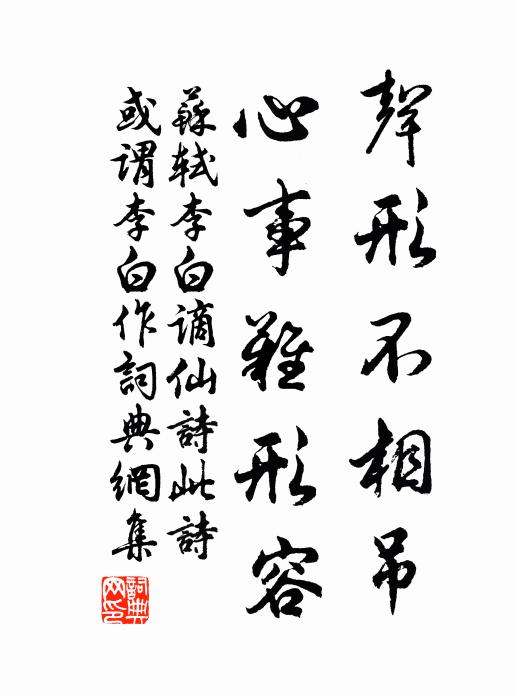 聲形不相吊
心事難形容
蘇軾李白謫仙詩此詩
或謂李白作詞典網集
詞典网印